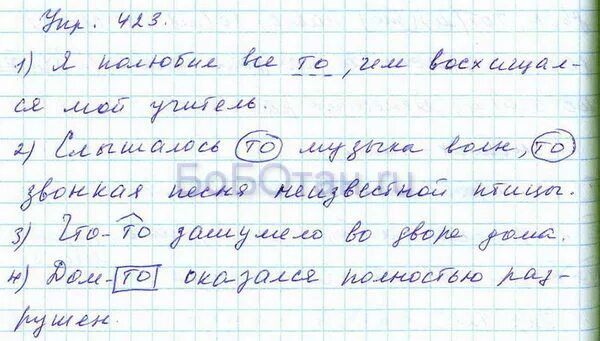 Упр. 423.
1) Я полюбил все то, чем восхищал-
ся мой учитель.
2) Слышалось то музыка волн, то
звонкая песня неизвестной птицы.
3) Что-то зашумело во дворе дома.
4) Дом-то оказался полностью раз-
рушен.
БоБОтан.ru